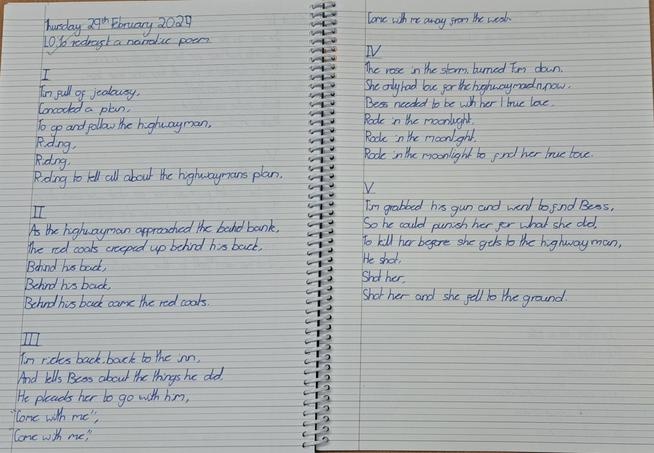 Thursday 29th February 2024
LO: To redraft a narrative poem
I
Tim full of jealousy,
Concocted a plan,
To go and follow the highwayman,
Riding,
Riding,
Riding to tell all about the highwaymans plan.
II
As the highwayman approached the bank,
The red coats creeped up behind his back,
Behind his back,
Behind his back,
Behind his back came the red coats.
III
Tim rides back back to the inn,
And tells Bess about the things he did.
He pleads her to go with him,
"Come with me",
"Come with me,"
Come with me away from the west.
IV
The rose in the storm, turned Tim down.
She only had love for the highwayman now.
Bess needed to be with her 1 true love.
Rode in the moonlight.
Rode in the moonlight.
Rode in the moonlight to find her true love.
V
Tim grabbed his gun and went to find Bess,
So he could punish her for what she did,
To kill her before she gets to the highwayman,
He shot,
Shot her,
Shot her and she fell to the ground.